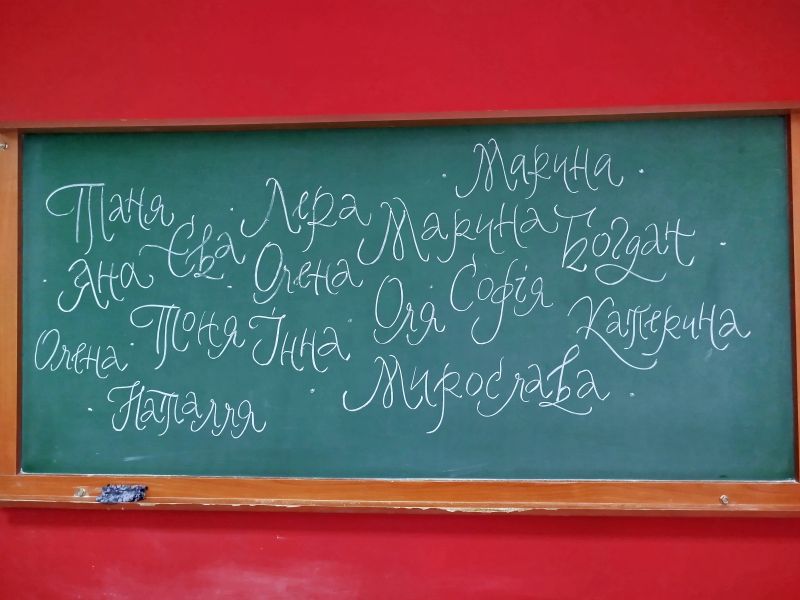 Марина
Таня Лера Марина Богдан
Єва
Яна Олена Оля Софія
Олена Тоня Інна Катерина
Наталля Мирослава